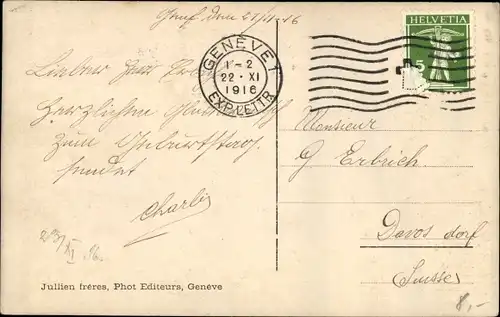 Genf, den 21/11.16
HELVETIA
5
GENÈVE 1
1-2
22·XI
1916
EXP. LETTR.
Lieber Herr
Herzlichen
zum Geburtstag
sendet
Charli
Monsieur
G Erbrich
Davos dorf
Suisse
23/XI 16.
Jullien fréres, Phot Editeurs, Geneve
8,-